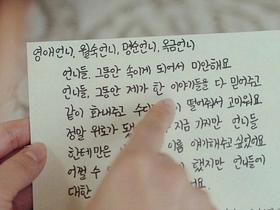 영애언니, 월숙언니, 명순언니, 옥금언니
언니들. 그동안 속이게 되어서 미안해요
언니들, 그동안 제가 한 이야기들을 다 믿어주고
같이 화내주고 떨어줘서 고마워요
정말 위로가 지금 가지만 언니들
한테만은 이름 얘기해주고 싶었어요
어쩔 수 했지만 언니들이
대한